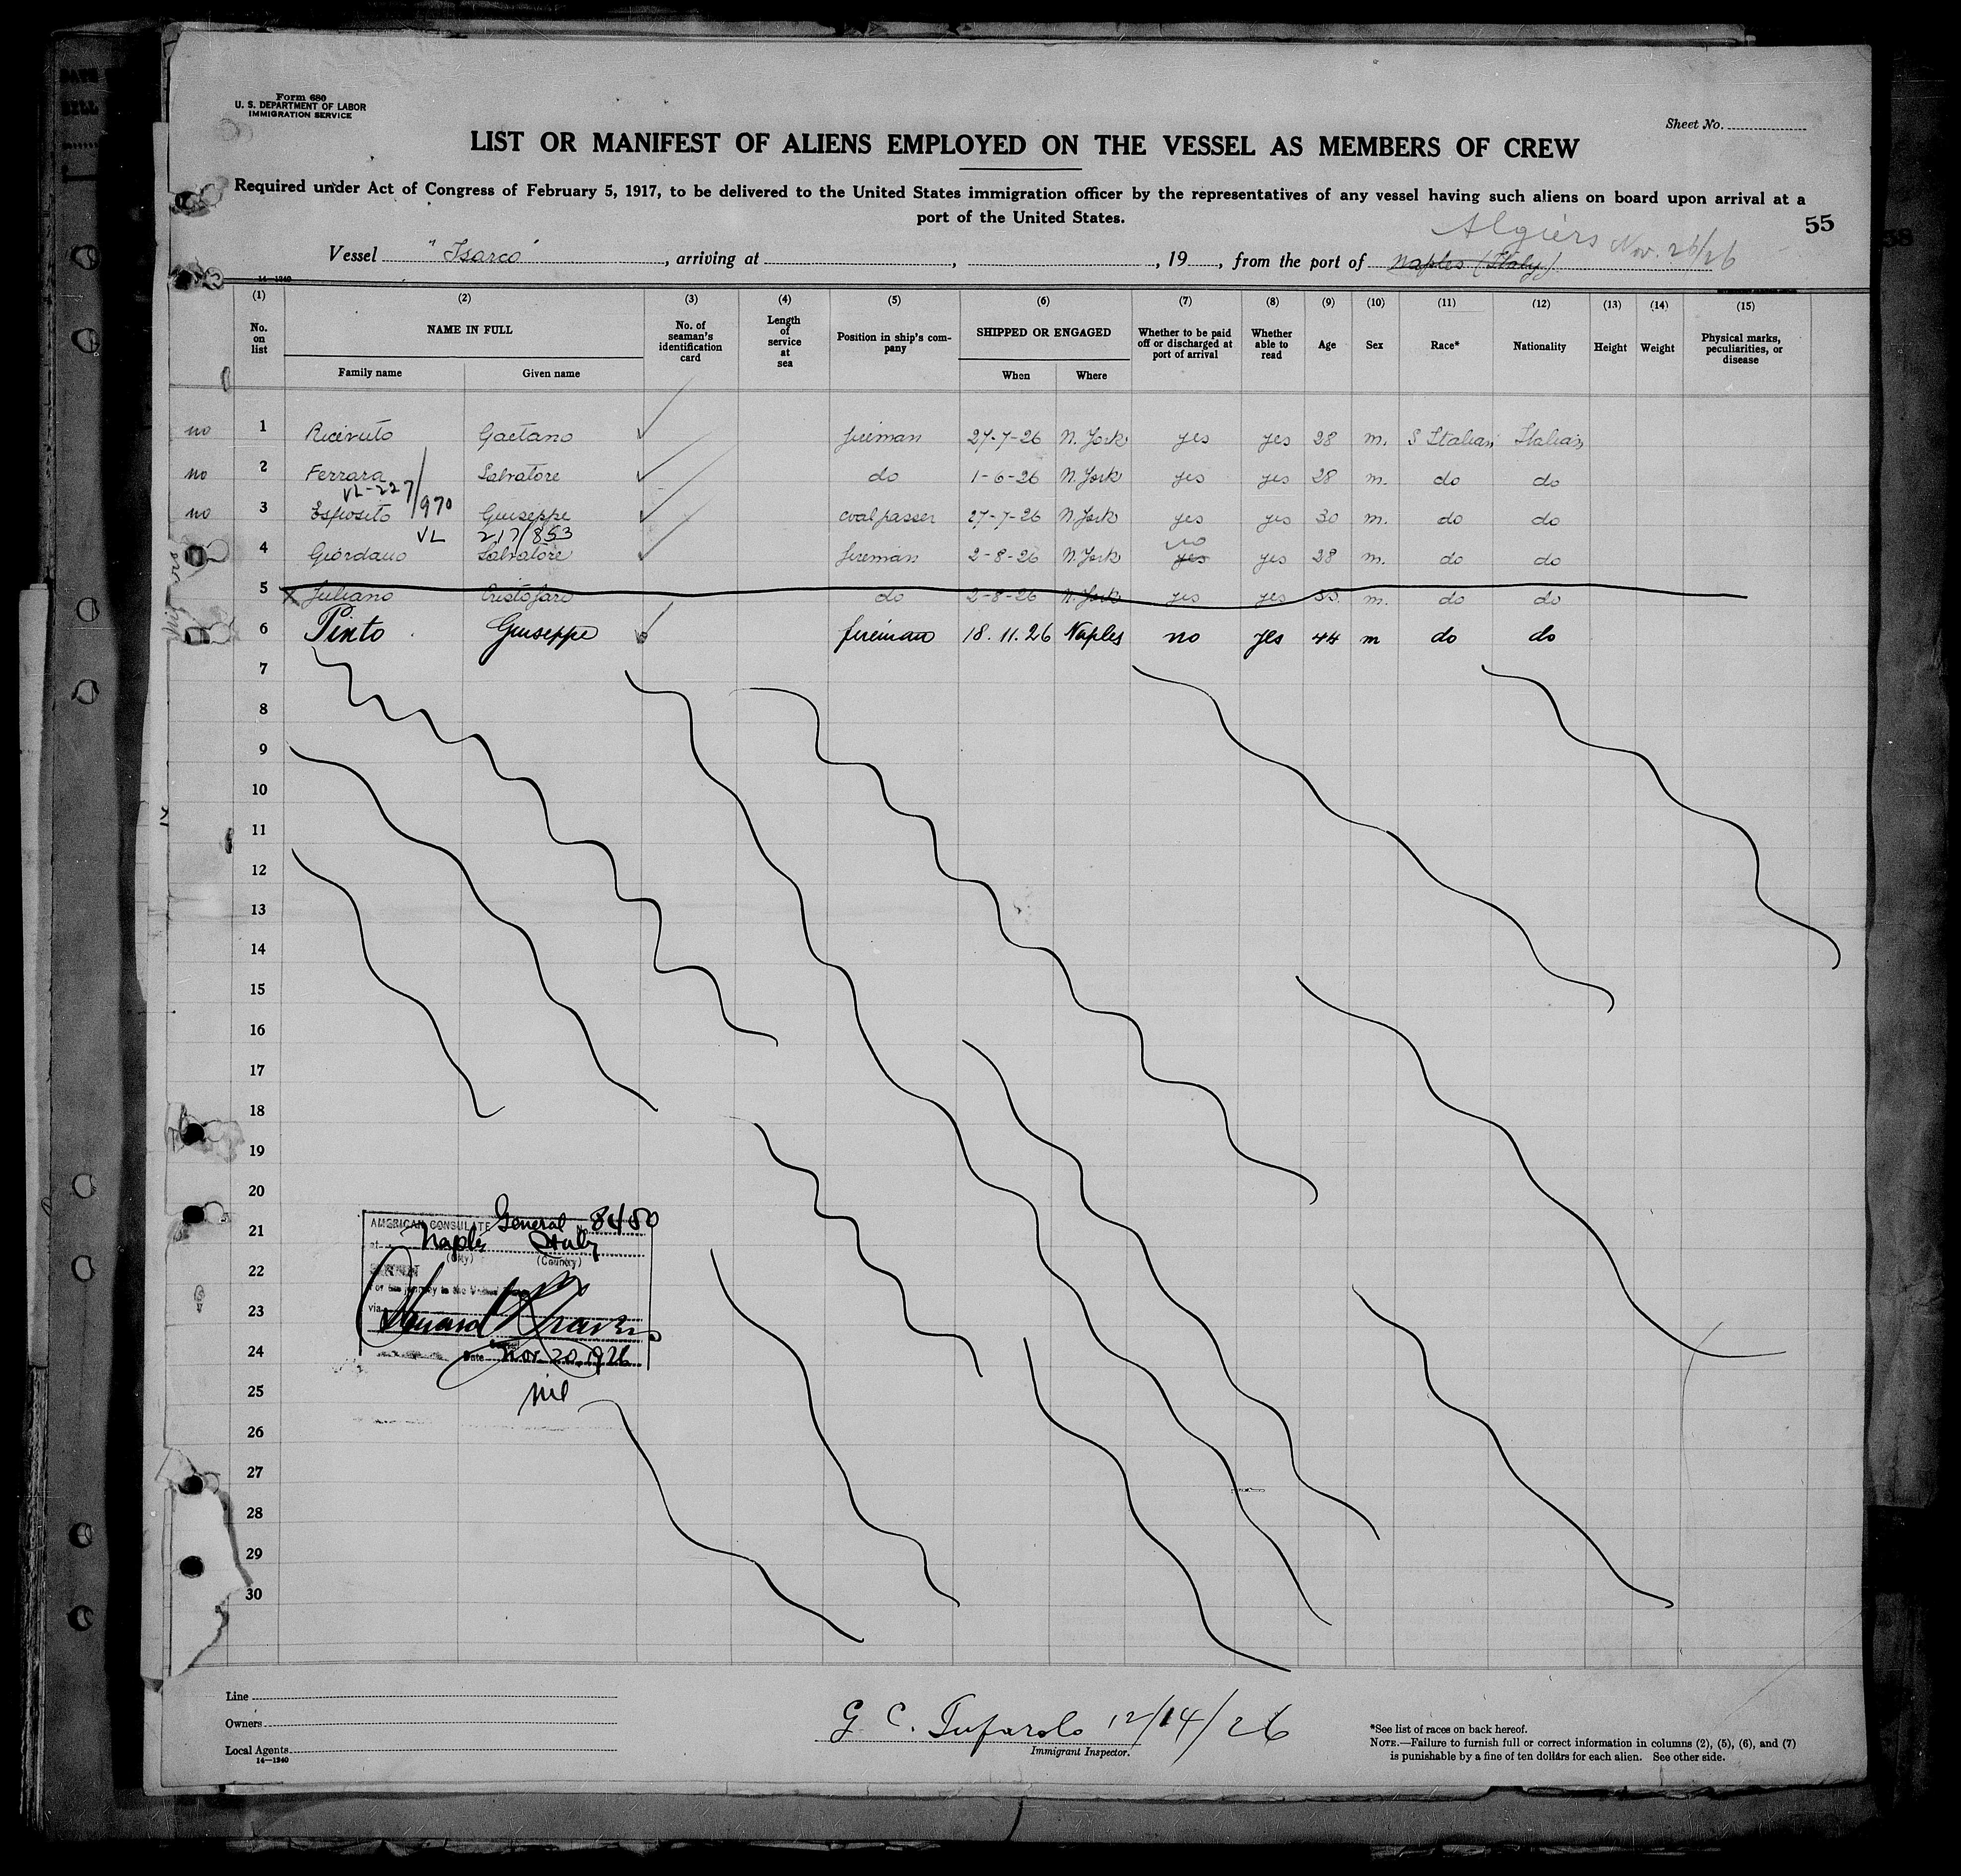 Form 680
U. S. DEPARTMENT OF LABOR
IMMIGRATION SERVICE
Sheet No.
LIST OR MANIFEST OF ALIENS EMPLOYED ON THE VESSEL AS MEMBERS OF CREW
Required under Act of Congress of February 5, 1917, to be delivered to the United States immigration officer by the representatives of any vessel having such aliens on board upon arrival at a
port of the United States.
55
Algiers Nov. 26/26
Vessel "Isarco", arriving at , , 19 , from the port of Naples (Italy)
14-1240
(1) (2) (3) (4) (5) (6) (7) (8) (9) (10) (11) (12) (13) (14) (15)
No. on list NAME IN FULL No. of seaman's identification card Length of service at sea Position in ship's company SHIPPED OR ENGAGED Whether to be paid off or discharged at port of arrival Whether able to read Age Sex Race* Nationality Height Weight Physical marks, peculiarities, or disease
Family name Given name When Where
no 1 Ricevuto Gaetano fireman 27-7-26 N. York yes yes 28 m. S Italian Italian
no 2 Ferrara Salvatore do 1-6-26 N. York yes yes 28 m. do do
VL-227/970
no 3 Esposito Giuseppe coal passer 27-7-26 N. York yes yes 30 m. do do
VL 217/853
no
4 Giordano Salvatore fireman 2-8-26 N. York yes yes 28 m. do do
5 Juliano Cristofaro do 2-8-26 N. York yes yes 33 m. do do
6 Pinto Giuseppe fireman 18.11.26 Naples no yes 44 m do do
7
8
9
10
11
12
13
14
15
16
17
18
19
20
21
22
23
24
25
26
27
28
29
30
AMERICAN CONSULATE General 8480
at Naples Italy
(City) (Country)
via
Date Nov. 20, 1926
nil
Line
Owners
Local Agents
14-1240
G C. Tufarolo 12/14/26
Immigrant Inspector.
*See list of races on back hereof.
NOTE.—Failure to furnish full or correct information in columns (2), (5), (6), and (7)
is punishable by a fine of ten dollars for each alien. See other side.